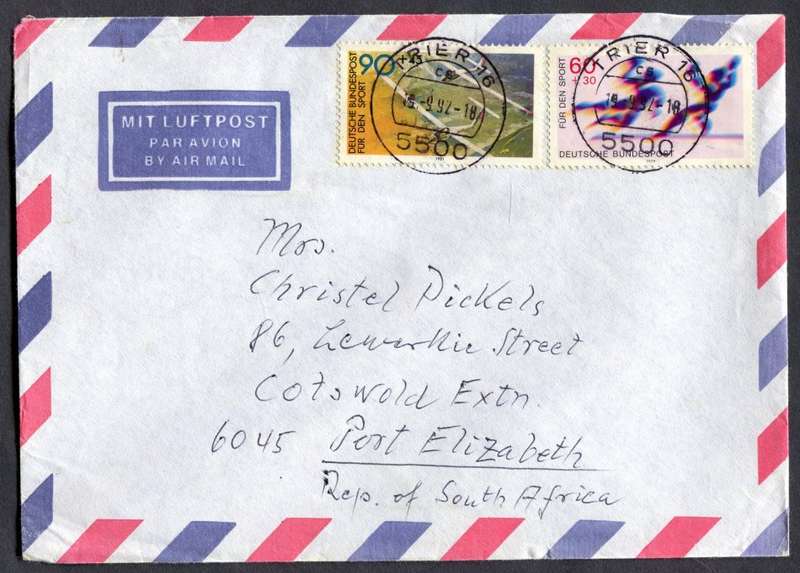 MIT LUFTPOST
PAR AVION
BY AIR MAIL
90
DEUTSCHE BUNDESPOST
FÜR DEN SPORT
1981
TRIER 16
cs
-9.92-18
5500
60
+30
FÜR DEN SPORT
DEUTSCHE BUNDESPOST
1979
TRIER 16
cs
-9.92-18
5500
Mrs.
Christel Pickels
86, Street
Cotswold Extn.
6045 Port Elizabeth
Rep. of South Africa